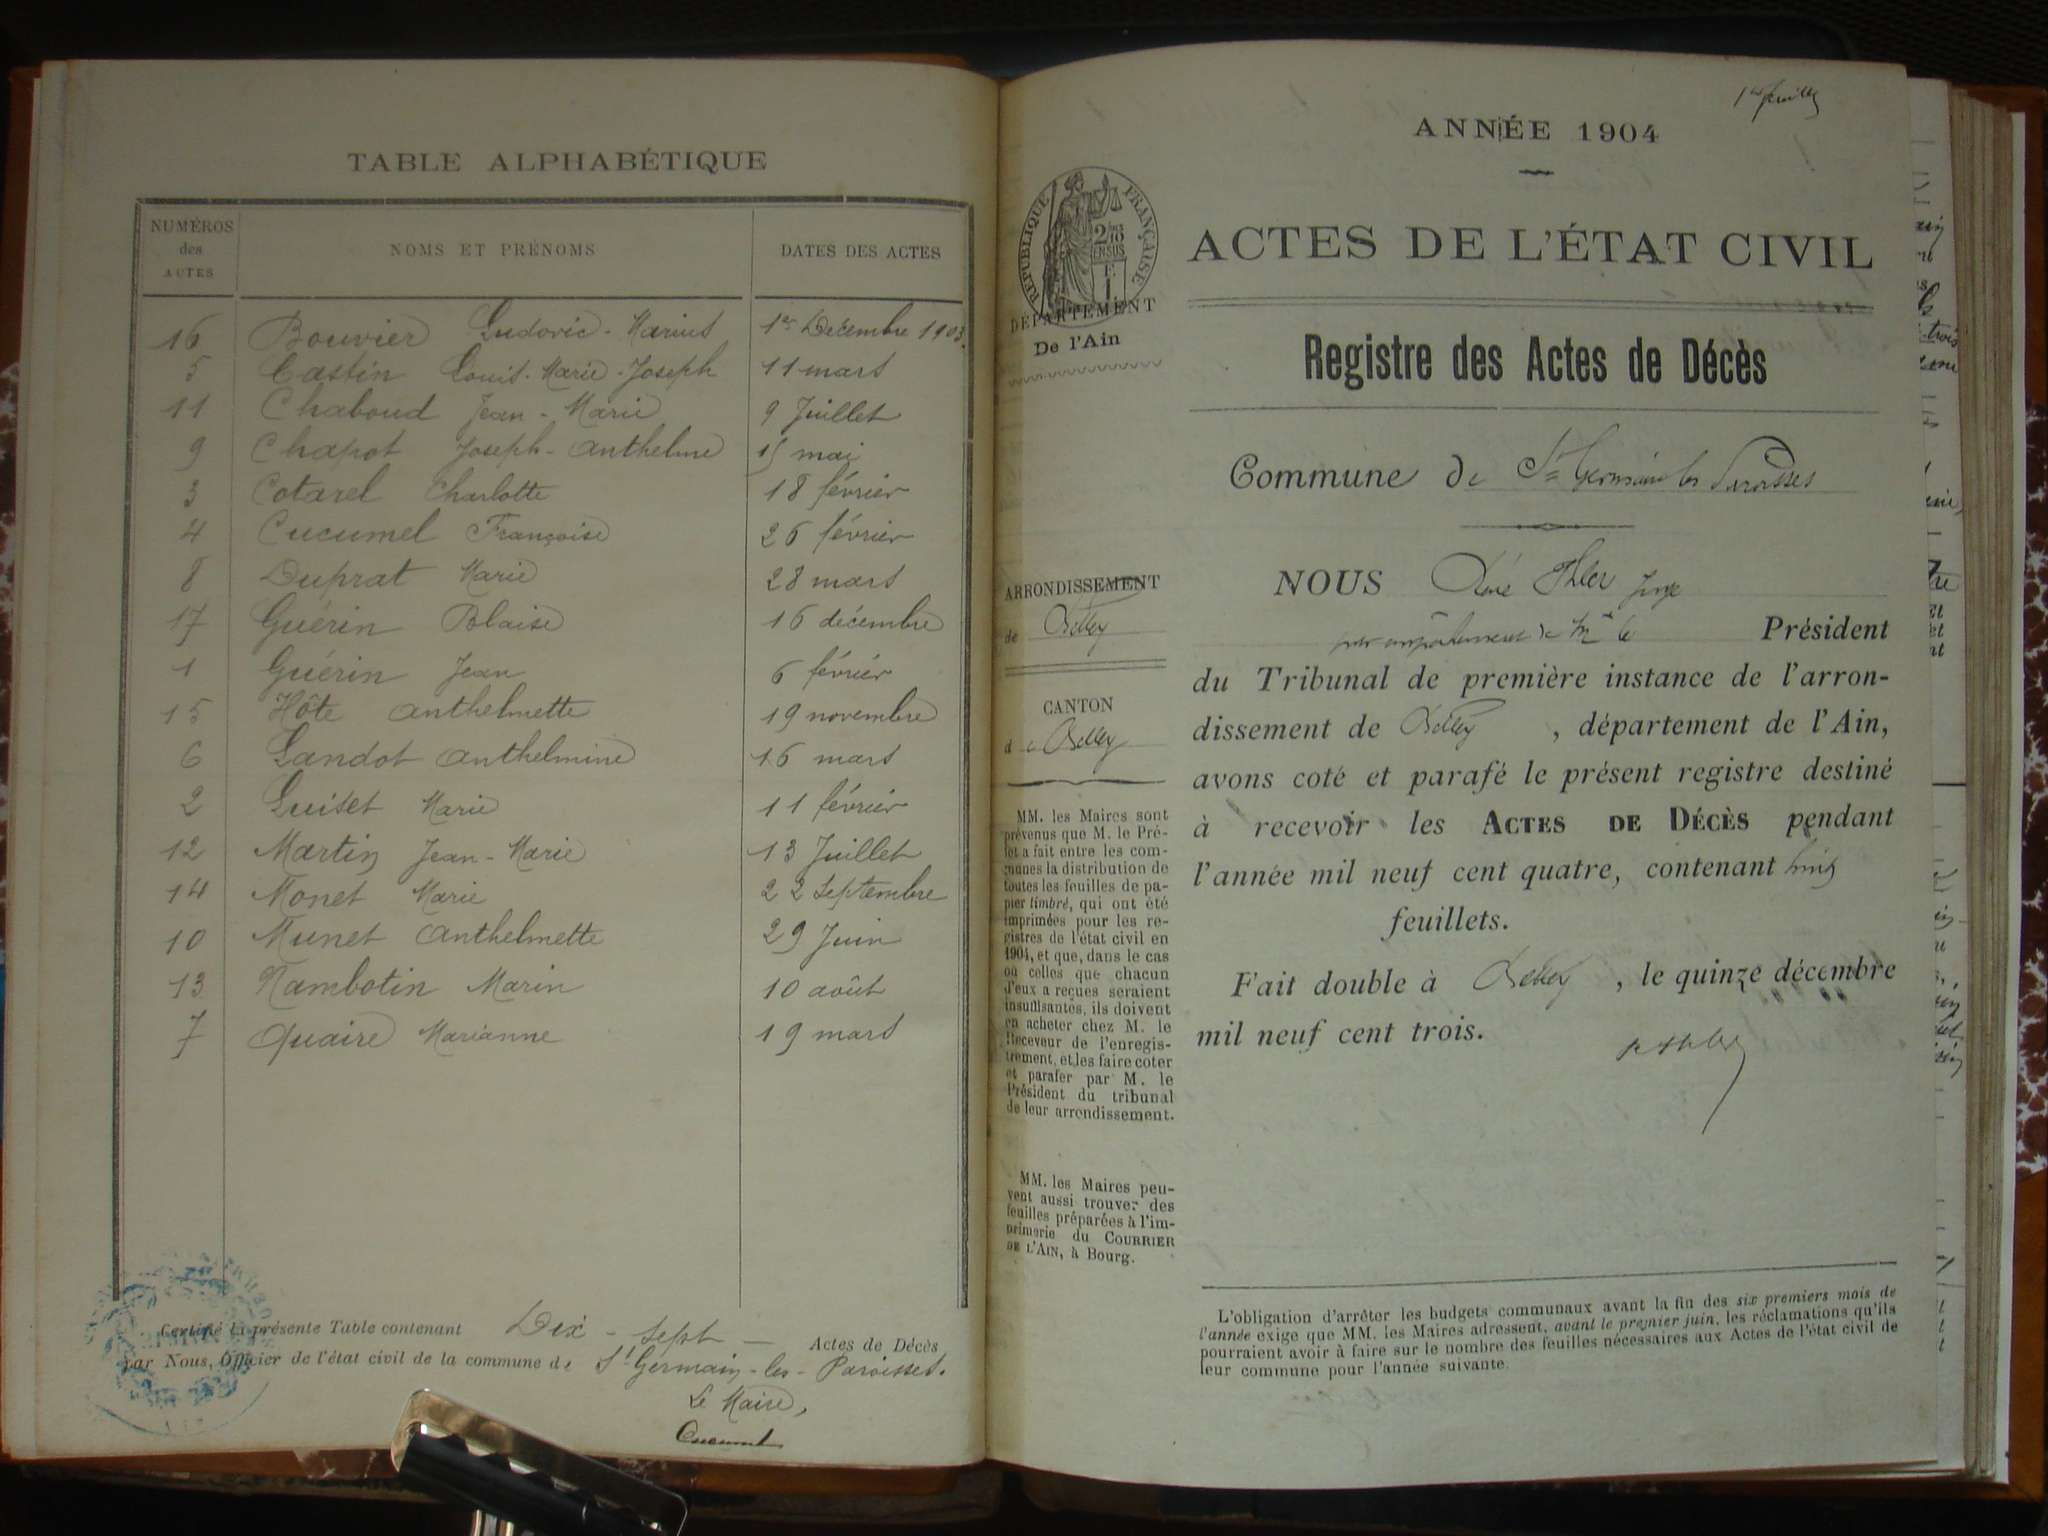 TABLE ALPHABÉTIQUE
NUMÉROS des ACTES
NOMS ET PRÉNOMS
DATES DES ACTES
16 Bouvier Ludovic-Marius 1er Décembre 1903.
5 Castin Louis-Marie-Joseph 11 mars
11 Chaboud Jean-Marie 9 Juillet
9 Chapot Joseph-Anthelme 15 mai
3 Cotarel Charlotte 18 février
4 Cucumel Françoise 26 février
8 Duprat Marie 28 mars
17 Guérin Blaise 16 décembre
1 Guérin Jean 6 février
15 Hôte Anthelmette 19 novembre
6 Landot Anthelmine 16 mars
2 Luiset Marie 11 février
12 Martin Jean-Marie 13 Juillet
14 Monet Marie 22 Septembre
10 Munet Anthelmette 29 Juin
13 Nambotin Marin 10 août
7 Quaire Marianne 19 mars
Certifié la présente Table contenant Dix-Sept Actes de Décès
par Nous, Officier de l'état civil de la commune de St Germain-les-Paroisses.
Le Maire,
Cucumel
1er feuillet
ANNÉE 1904
RÉPUBLIQUE FRANÇAISE
DÉPARTEMENT
De l'Ain
ACTES DE L'ÉTAT CIVIL
Registre des Actes de Décès
Commune de St Germain les Paroisses
ARRONDISSEMENT
de Belley
CANTON
de Belley
MM. les Maires sont
prévenus que M. le Pré-
fet a fait entre les com-
munes la distribution de
toutes les feuilles de pa-
pier timbré, qui ont été
imprimées pour les re-
gistres de l'état civil en
1904, et que, dans le cas
où celles que chacun
d'eux a reçues seraient
insuffisantes, ils doivent
en acheter chez M. le
Receveur de l'enregis-
trement, et les faire coter
et parafer par M. le
Président du tribunal
de leur arrondissement.
MM. les Maires peu-
vent aussi trouver des
feuilles préparées à l'im-
primerie du COURRIER
DE L'AIN, à Bourg.
NOUS René Ihler Juge
par empêchement de Mr le Président
du Tribunal de première instance de l'arron-
dissement de Belley, département de l'Ain,
avons coté et parafé le présent registre destiné
à recevoir les ACTES DE DÉCÈS pendant
l'année mil neuf cent quatre, contenant huit
feuillets.
Fait double à Belley, le quinze décembre
mil neuf cent trois.
L'obligation d'arrêter les budgets communaux avant la fin des six premiers mois de
l'année exige que MM. les Maires adressent, avant le premier juin, les réclamations qu'ils
pourraient avoir à faire sur le nombre des feuilles nécessaires aux Actes de l'état civil de
leur commune pour l'année suivante.